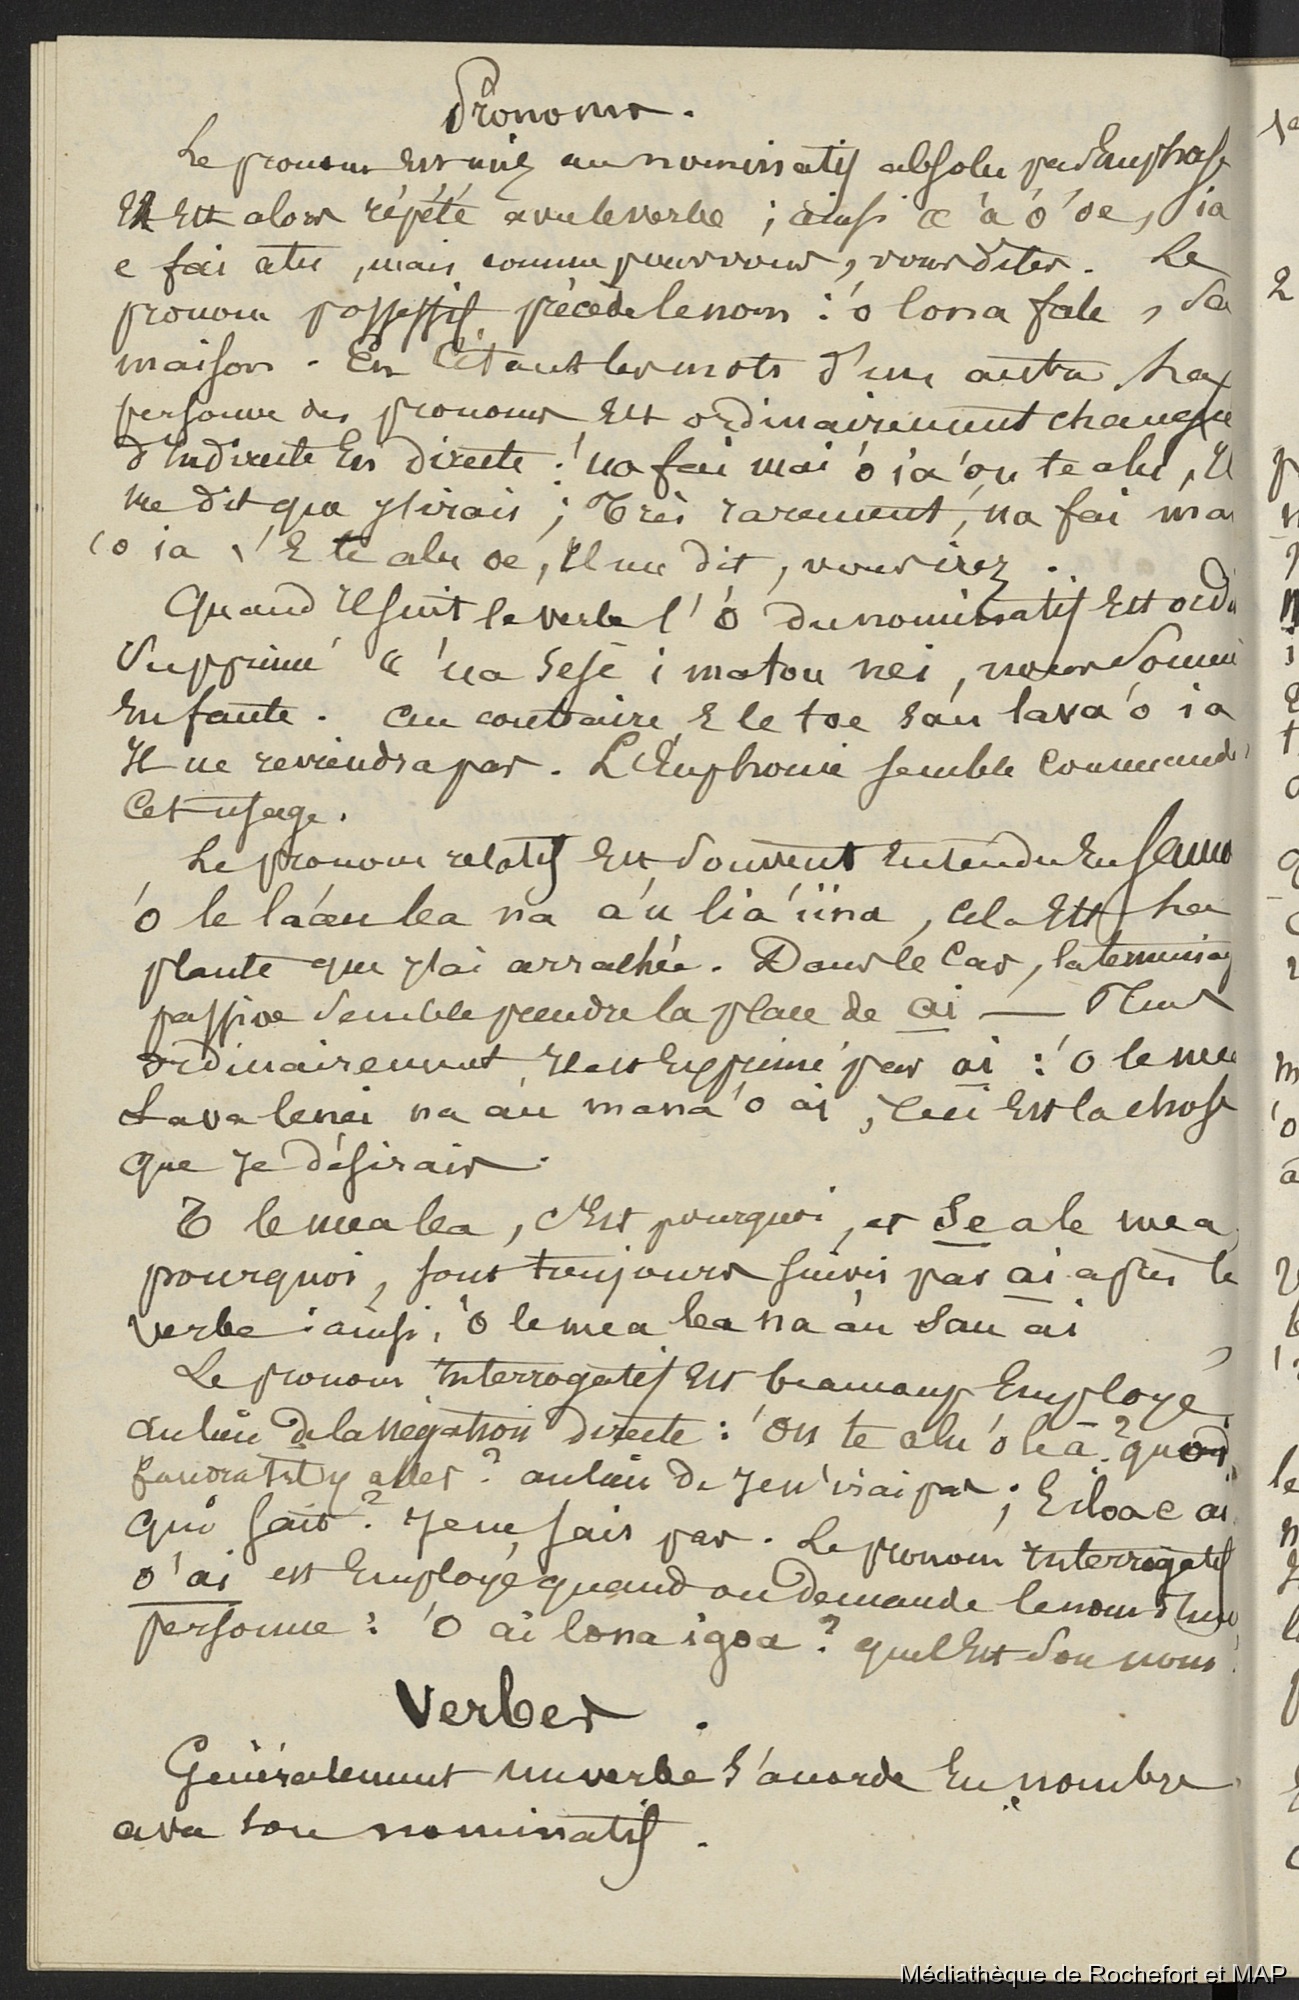 Pronoms.
Le pronom est mis au nominatif absolu par Emphase
Et Est alors répété avec le verbe ; ainsi a 'a 'o 'oe, ia
e fai atu, mais comme pour vous, vous dites. Le
pronom possessif précède le nom : 'o lona fale, Sa
maison. En citant les mots d'une autre La
personne des pronoms Est ordinairement changée
d'Indirecte En directe : 'na fai mai 'o ia 'ou te alu, Il
me dit que j'irais ; Très rarement, na fai mai
'o ia 'E te alu oe, Il me dit, vous irez.
Quand Il suit le verbe l' 'o du nominatif Est ordi
Supprimé " 'ua sesē i matou nei, nous Sommes
En faute. Au contraire E le toe sau lava 'o ia
Il ne reviendra pas. L'Euphonie semble commander
Cet usage.
Le pronom relatif Est Souvent entendu En Samoa
'o le lā'au lea na a'u lia'iina, cela Est La
plante que J'ai arrachée. Dans le Cas, la terminaison
passive Semble prendre la place de ai — Plus
ordinairement Il est Exprimé par ai : 'O le mea
Lava lenei na au mana'o ai, Ceci Est la chose
que Je désirais.
O le mea lea, c'Est pourquoi, et Se a le mea
pourquoi, sont toujours suivis par ai après le
verbe : ainsi, 'O le mea lea na au Sau ai
Le pronom Interrogatif Est beaucoup Employé
au lieu de la négation directe : 'Ou te alu 'o le ā ? quoi
faudrait Il y aller ? au lieu de Je n'irai pas ; E iloa e ai
qui sait ? Je ne sais pas. Le pronom Interrogatif
o 'ai est Employé quand on demande le nom d'une
personne : 'O ai lona igoa ? quel Est Son nom ?
Verbes.
Généralement un verbe S'accorde En nombre
avec son nominatif.
Médiathèque de Rochefort et MAP